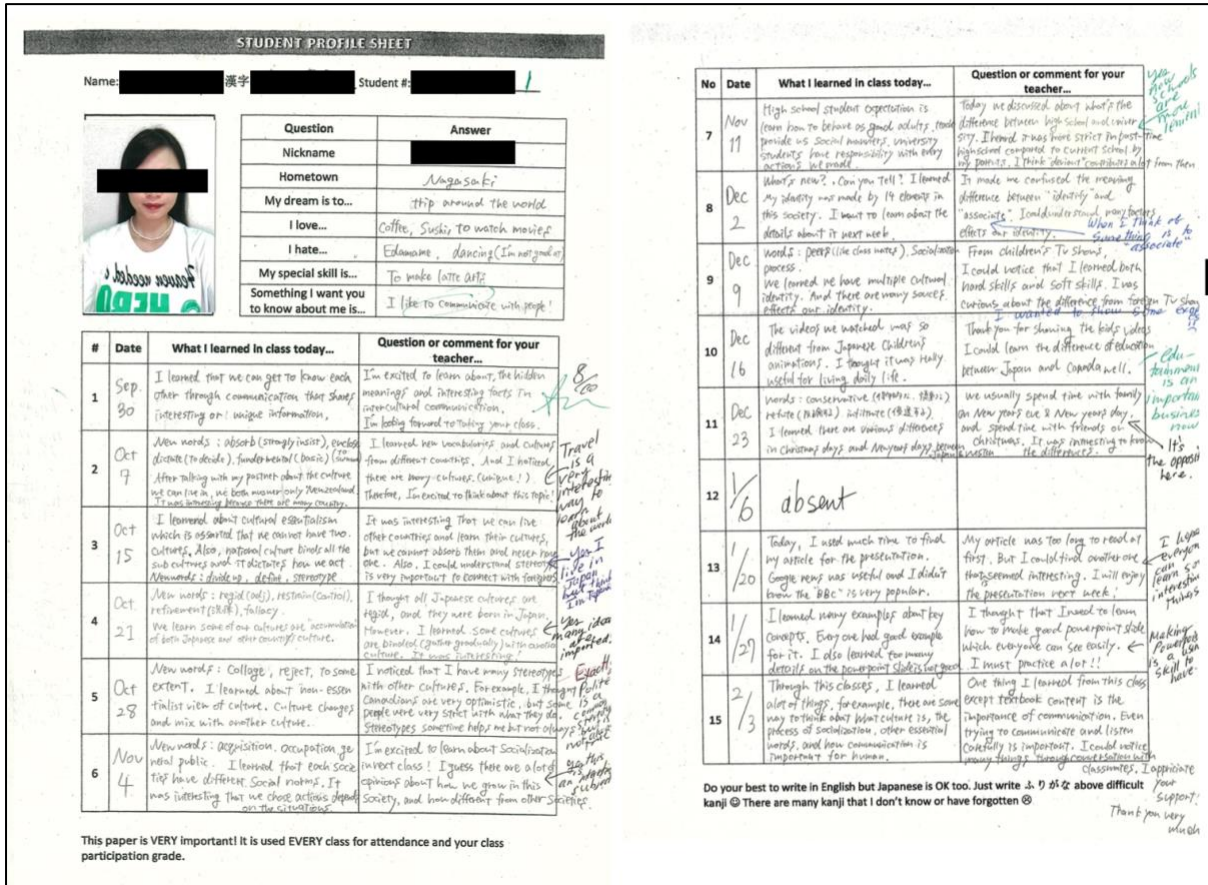 STUDENT PROFILE SHEET
Name: 漢字 Student #: 1
Question Answer
Nickname
Hometown Nagasaki
My dream is to... trip around the world
I love... Coffee, Sushi, to watch movies
I hate... Edamame, dancing (I'm not good at)
My special skill is... To make latte arts
Something I want you
to know about me is... I like to communicate with people!
# Date What I learned in class today... Question or comment for your
teacher...
1
Sep.
30
I learned that we can get to know each
other through communication that shares
interesting or unique information.
I'm excited to learn about, the hidden
meanings and interesting facts in
intercultural communication.
I'm looking forward to taking your class.
8/20
2
Oct
7
New words : absorb (strongly insist),
dictate (to decide), fundermental (basic)
After talking with my partner about the culture
we can live in, we both answer only
It was interesting because there are many country.
I learned new vocabularies, and cultures
from different countries. And I noticed
there are many cultures. (unique!)
Therefore, I'm excited to think about this topic!
Travel
is a
very
interesting
way to
learn
about
the world
3
Oct
15
I learned about cultural essentialism
which is asserted that we cannot have two
cultures. Also, national culture binds all the
sub cultures and it dictates how we act.
New words : divide up, define, stereotype
It was interesting that we can live
other countries and learn their cultures,
but we cannot absorb them and never
one. Also, I could understand stereotype
is very important to connect with foreigners
Yes I
live in
Japan
but
I'm
4
Oct.
21
New words : regid (adj), restrain (control),
refinement, fallacy.
We learn some of our cultures are accumulation
of both Japanese and other country's culture.
I thought all Japanese cultures are
regid, and they were born in Japan.
However, I learned some cultures
are binded (gather gradually) with
culture. It was interesting!
Yes
many ideas
are
imported.
5
Oct
28
New words : Collage, reject, to some
extent. I learned about non-essen
tialist view of culture. Culture changes
and mix with another culture.
I noticed that I have many stereotypes
with other cultures. For example, I thought
Canadians are very optimistic, but some
people were very strict with what they do.
Stereotypes sometime helps me but not always
Polite
is a
6
Nov
4
New words : acquisition, occupation ge
neral public. I learned that each socie
ties have different social norms. It
was interesting that we chose actions depend
on the situations.
I'm excited to learn about Socialization
in next class! I guess there are a lot of
opinions about how we grow in this
Society, and how different from other Societies.
This paper is VERY important! It is used EVERY class for attendance and your class
participation grade.
No Date What I learned in class today... Question or comment for your
teacher...
7
Nov
11
High school student expectation is
learn how to behave as good adults,
provide us social manners, university
students have responsibility with every
actions we made.
Today we discussed about what's the
difference between high school and univer
sity. I heard it was more strict in past-time
highschool compared to current school by
my parents. I think "deviant" contributes a lot from then
Yes
now
schools
are
more
lenient
8
Dec
2
What's new?, Can you tell? I learned
My identity was made by 14 elements in
this society. I want to learn about the
details about it next week.
It made me confused the meaning
difference between "identify" and
"associate". I could understand, many factors
effects our identity.
When I think of
something is to
"associate"
9
Dec
9
words : peers (like class mates), Socialization
process.
We learned we have multiple cultural
identity. And there are many
effects our identity.
From children's TV shows,
I could notice that I learned both
hard skills and soft skills. I was
curious about the difference from foreign TV show
I wanted to show some
10
Dec
16
The videos we watched was so
different from Japanese Children's
animations. I thought it was really
useful for living daily life.
Thank you for showing the kids videos
I could learn the difference of education
between Japan and Canada well.
edu-
tainment
is an
important
business
now
11
Dec
23
words : conservative
refute institute
I learned there are various differences
in Christmas days and New years days between
Japan & western
we usually spend time with family
on New years eve & New years day,
and spend time with friends on
christmas. It was interesting to know
the differences.
It's
the opposite
here.
12
1/6
absent
13
1/20
Today, I used much time to find
my article for the presentation.
Google news was useful and I didn't
know the "BBC" is very popular.
My article was too long to read at
first. But I could find another one
that seemed interesting. I will enjoy
the presentation next week!
I hope
everyone
can
learn some
interesting
things
14
1/27
I learned many examples about key
concepts. Every one had good example
for it. I also learned too many
details on the powerpoint slide is not good
I thought that I need to learn
how to make good powerpoint slide
which everyone can see easily.
I must practice a lot!!
Making
Powerpoints
is a
skill to
have
15
2/3
Through this classes, I learned
alot of things, for example, there are some
way to think about what culture is, the
process of socialization, other essential
words, and how communication is
important for human.
One thing I learned from this class
except textbook content is the
importance of communication. Even
trying to communicate and listen
carefully is important. I could notice
many things through conversation with
classmates. I appriciate
your
support!
Thank you very
much
Do your best to write in English but Japanese is OK too. Just write ふりがな above difficult
kanji ☺ There are many kanji that I don't know or have forgotten ☹